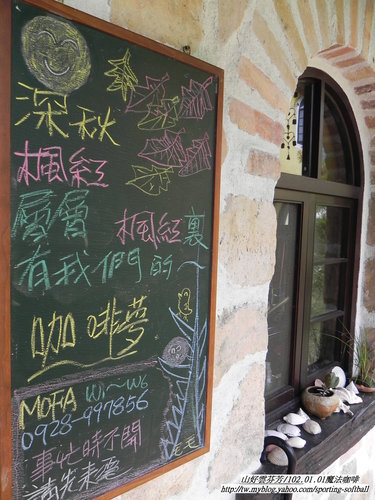 深秋
楓紅
層層
楓紅裏
有我們的～
咖啡夢
MOFA W1～W6
0928-997856
事忙時不開
請先來電
山好雲芬芳/102.01.01魔法咖啡
http://tw.myblog.yahoo.com/sporting-softball